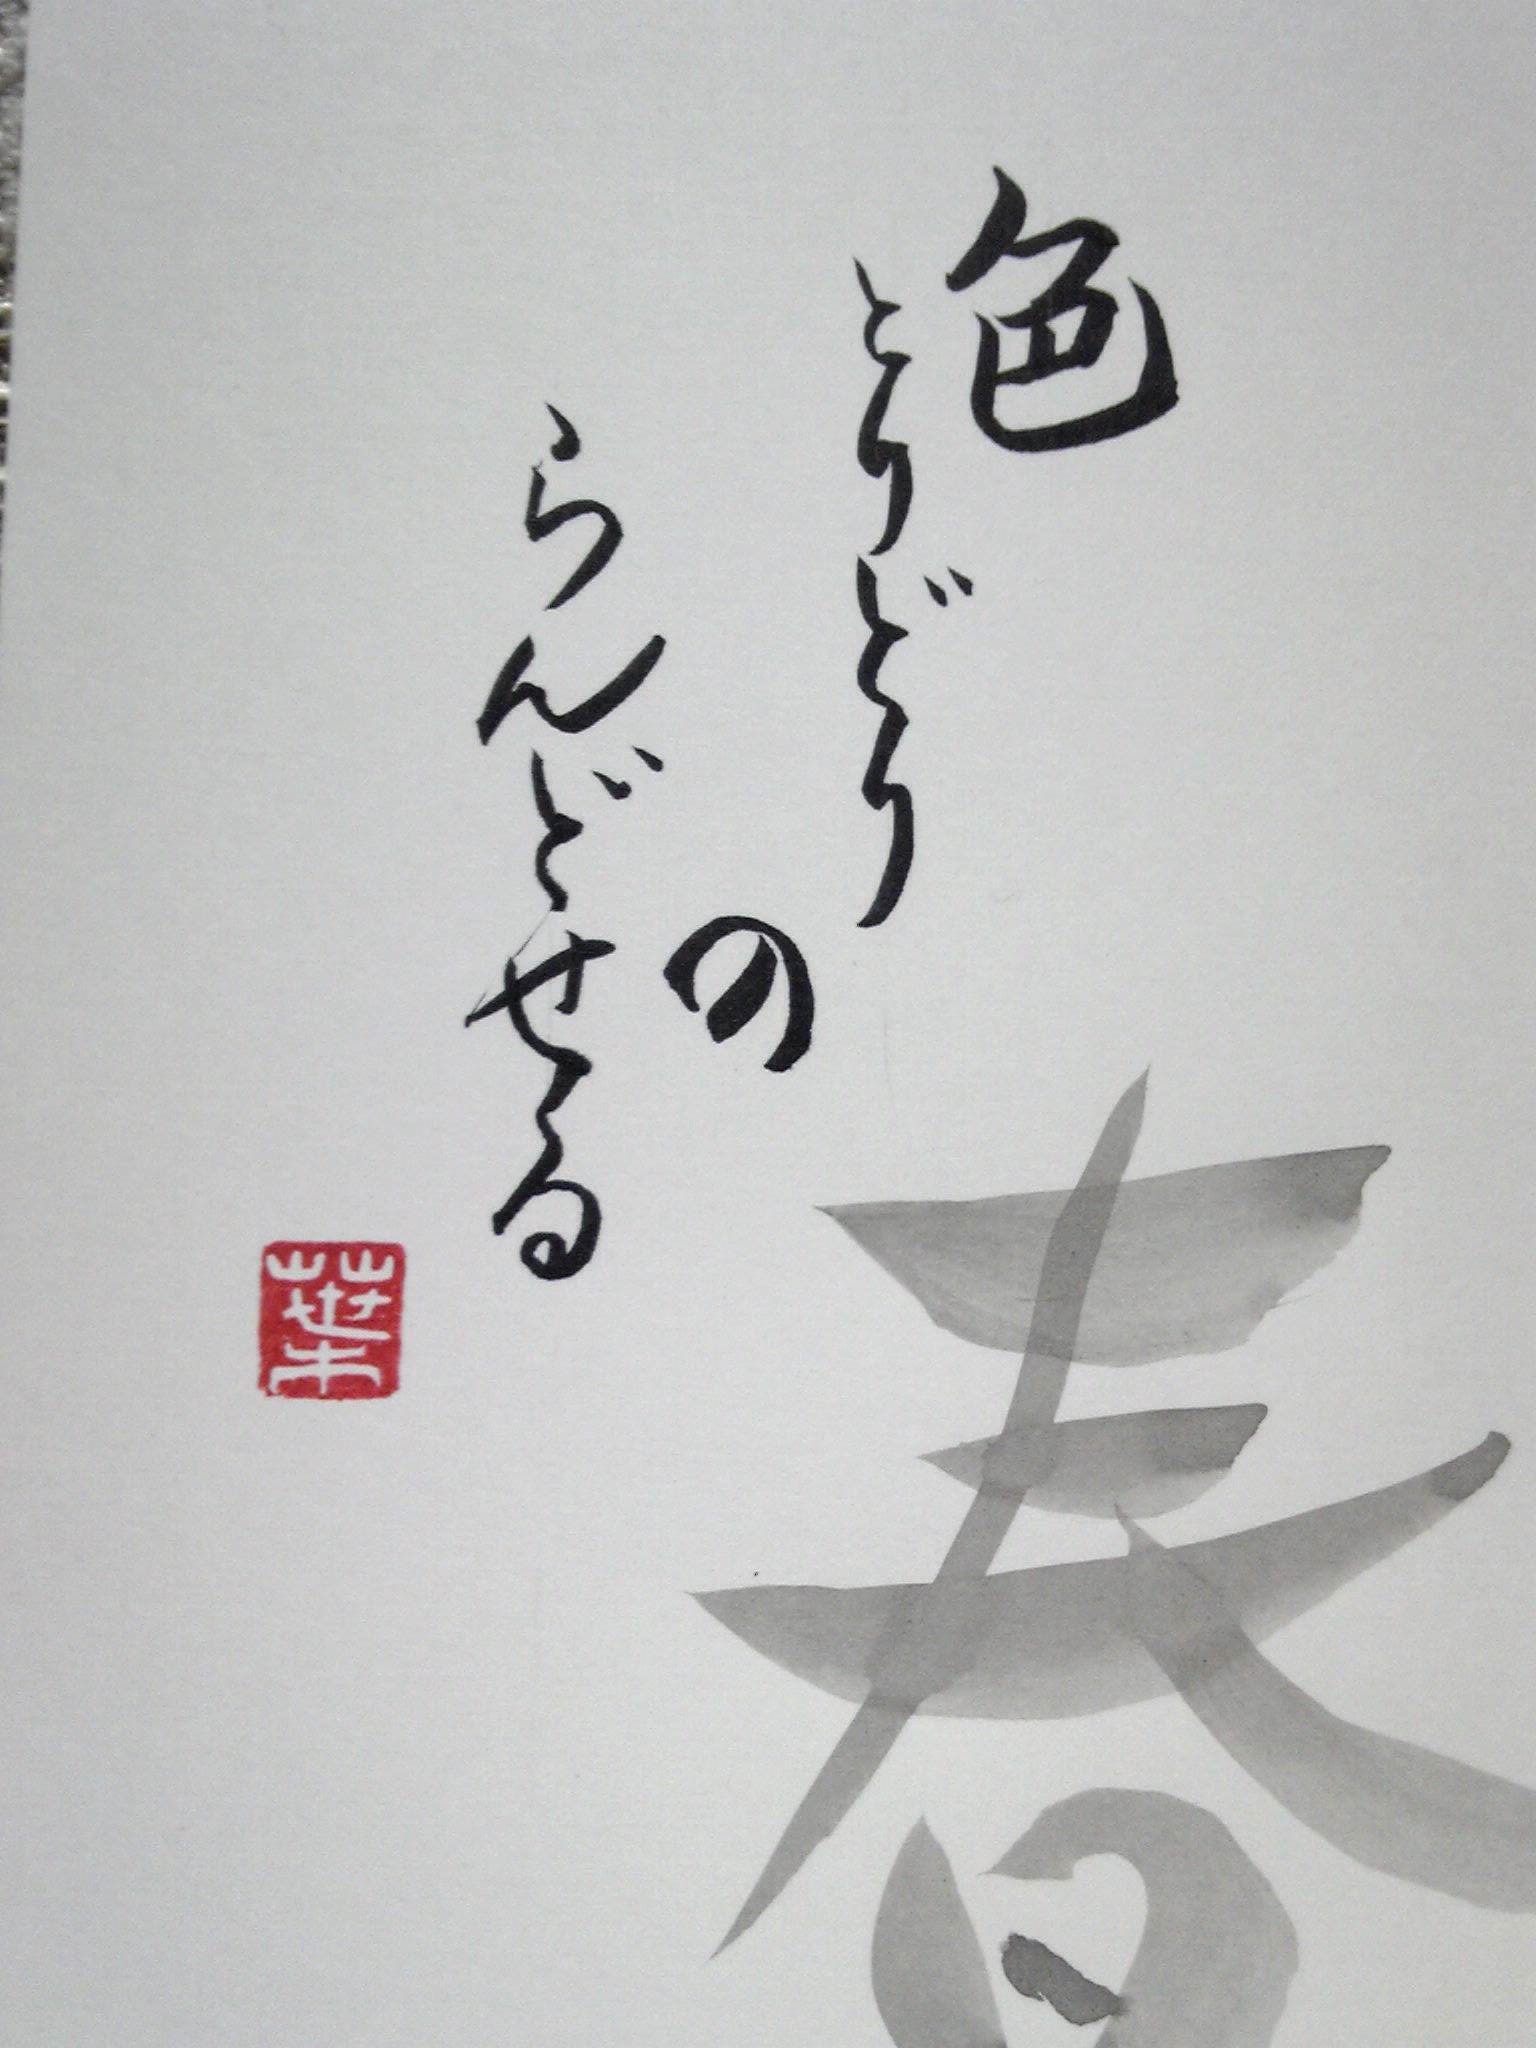 色
とりどり
の
らんどせる
春
葉